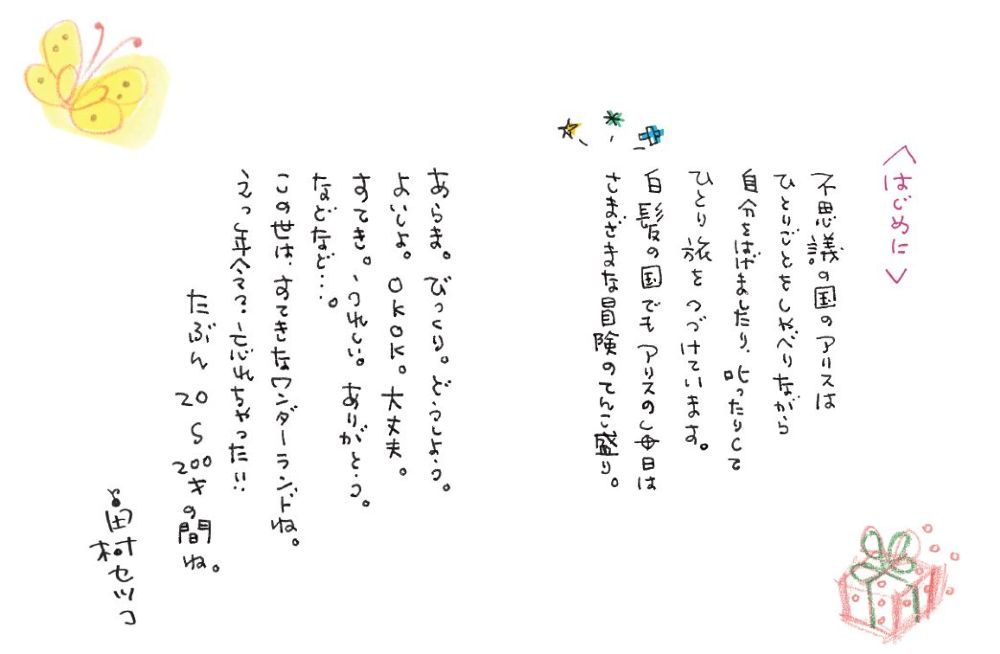 〈はじめに〉
不思議の国のアリスは
ひとりごとをしゃべりながら
自分をはげましたり、叱ったりして
ひとり旅をつづけています。
白髪の国でもアリスの毎日は
さまざまな冒険のてんこ盛り。
あらま。びっくり。どうしよう。
よいしょ。OKOK。大丈夫。
すてき。うれしい。ありがとう。
などなど…。
この世は、すてきなワンダーランドね。
えっ年令？忘れちゃった!!
たぶん 20〜200才の間ね。
田村セツコ